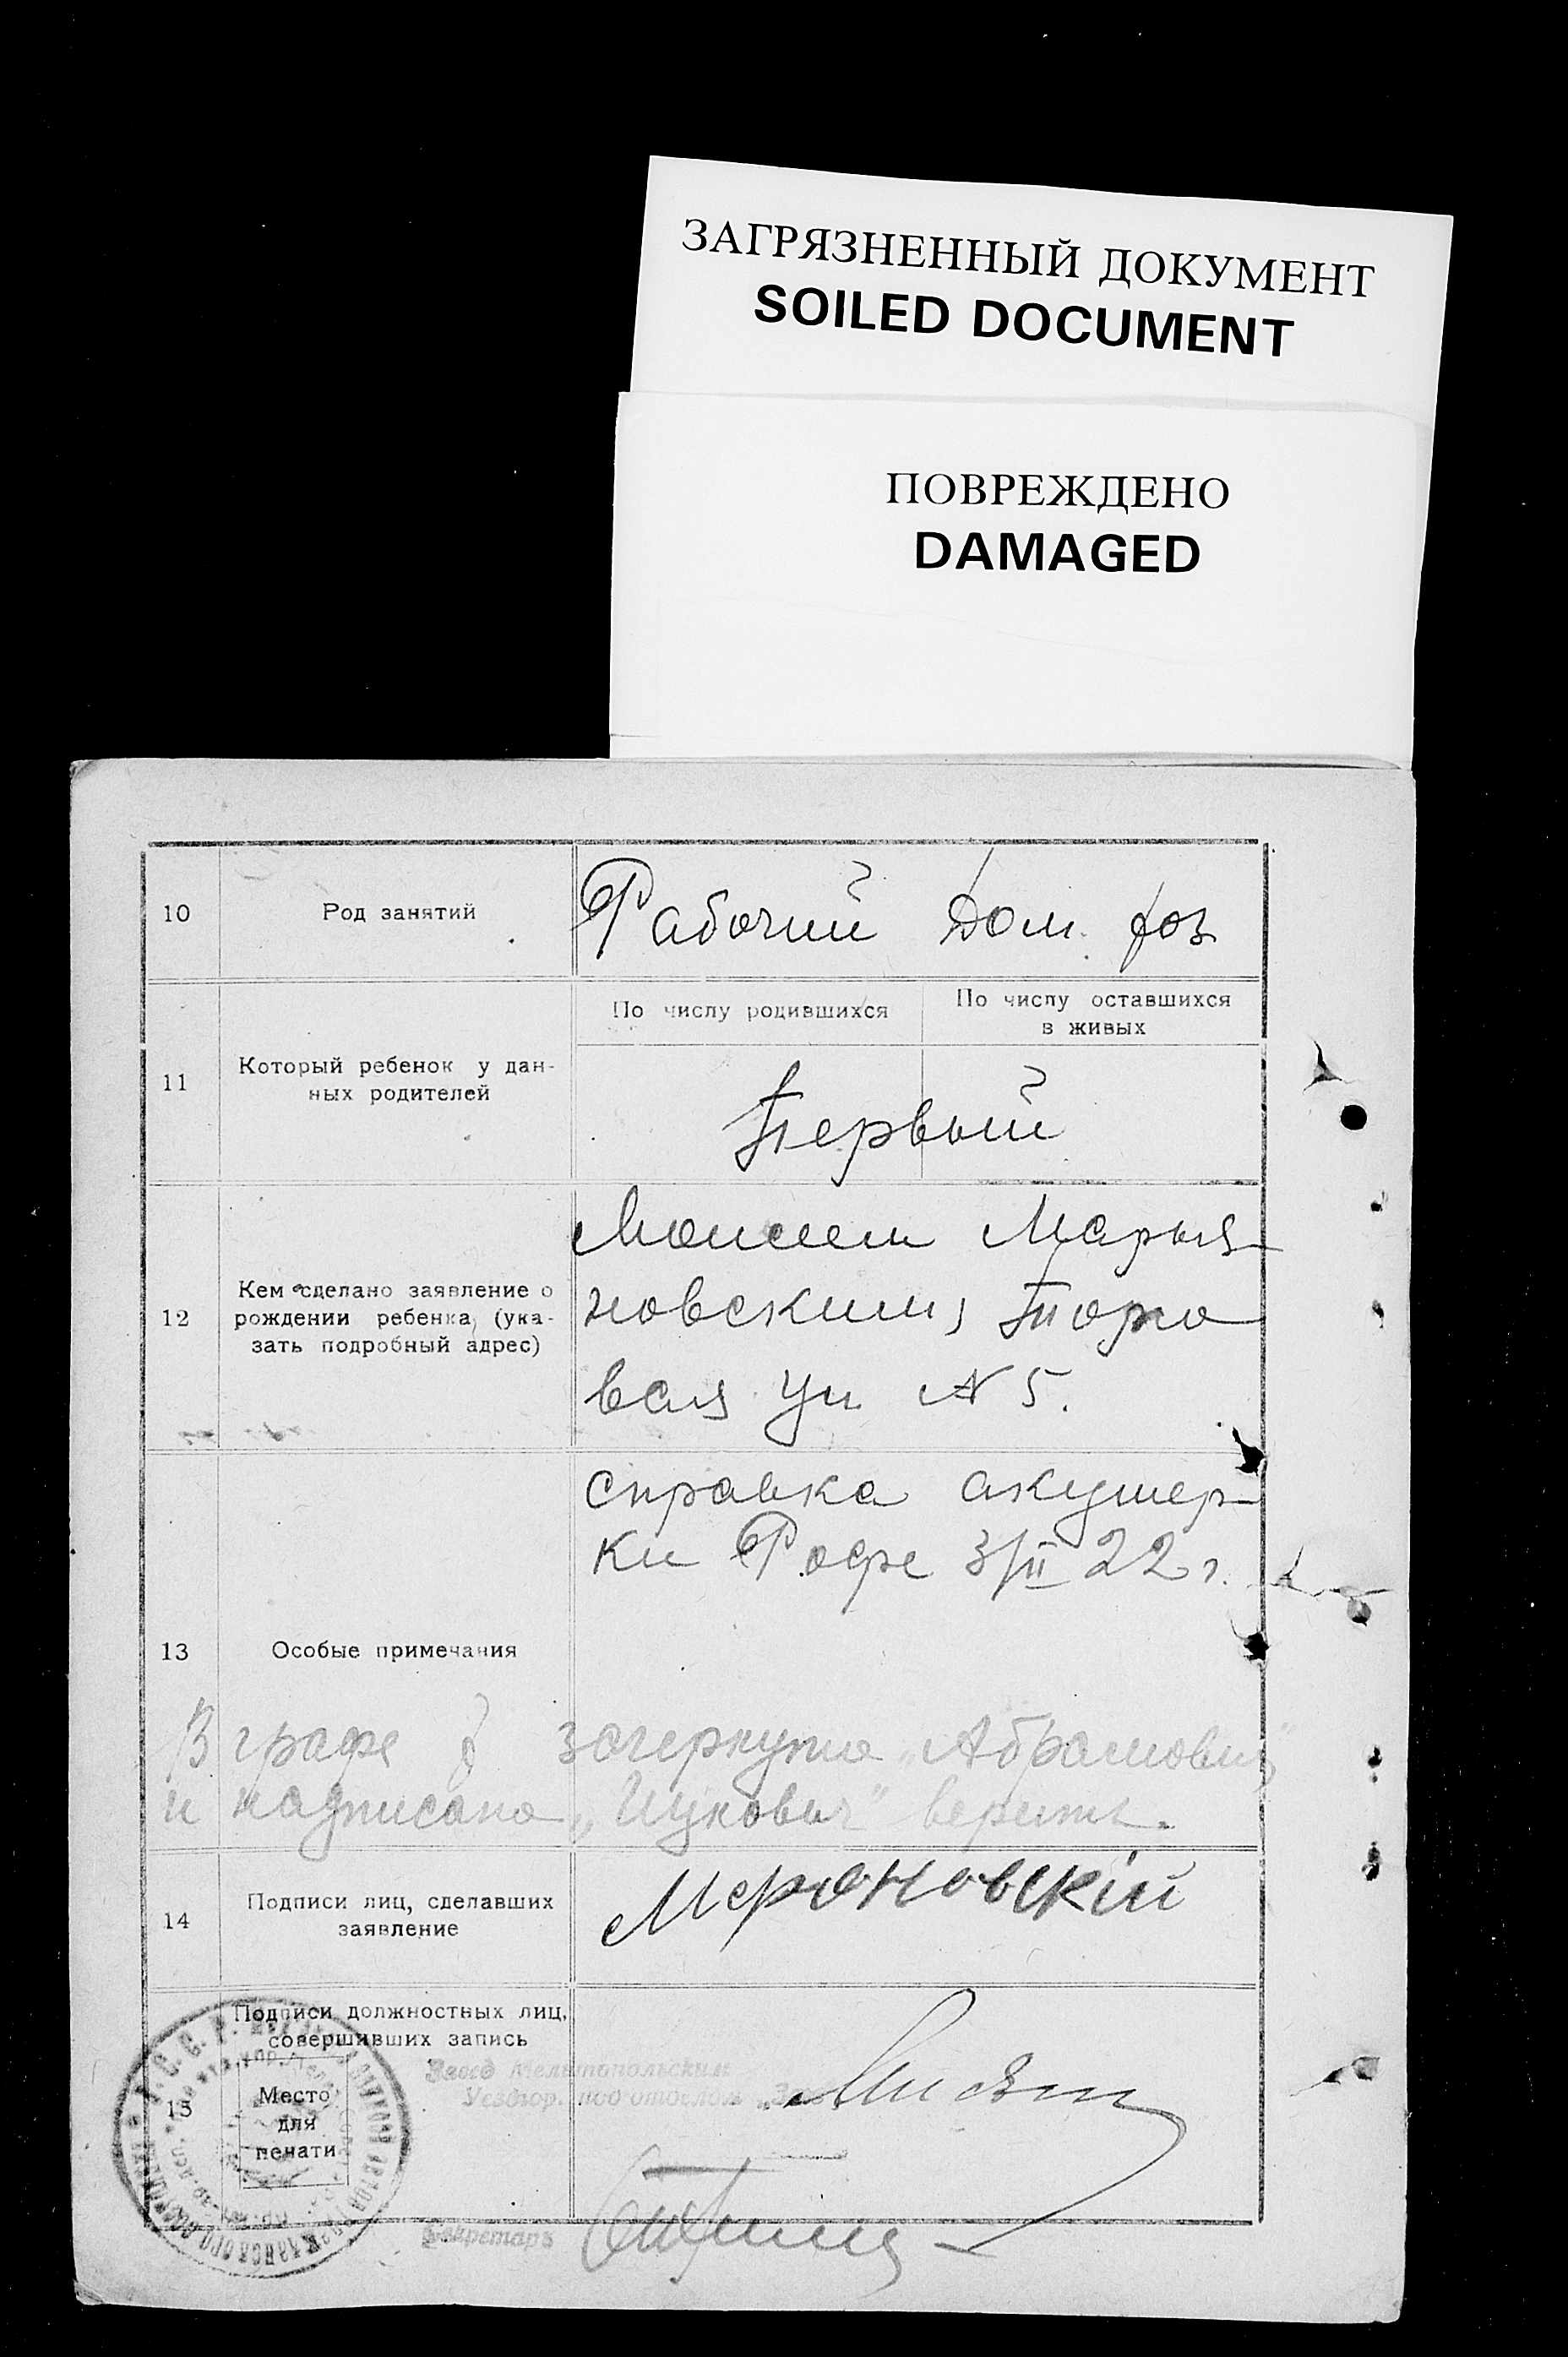 ЗАГРЯЗНЕННЫЙ ДОКУМЕНТ
SOILED DOCUMENT
ПОВРЕЖДЕНО
DAMAGED
10
Род занятий
Рабочий Дом. хоз
11
Который ребенок у дан-
ных родителей
По числу родившихся
По числу оставшихся
в живых
Первый
12
Кем сделано заявление о
рождении ребенка, (ука-
зать подробный адрес)
Моисеем Марья
новским, Торго
вая ул N 5.
13
Особые примечания
справка акушер-
ки Рофе 3/II 22 г.
В графе зачеркнуто „Абрамович"
и надписано „Ицкович" верить.
14
Подписи лиц, сделавших
заявление
Мерановскій
15
Подписи должностных лиц,
совершивших запись
Место
для
печати
Завед Мелитопольским
Уездгор. под отделом
Секретарь